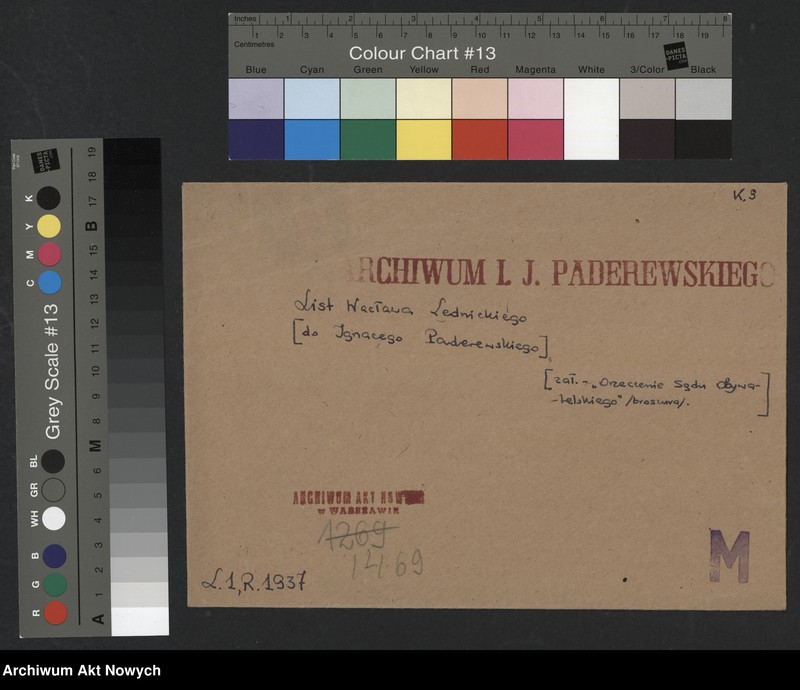 Inches 1 2 3 4 5 6 7 8
Centimetres 1 2 3 4 5 6 7 8 9 10 11 12 13 14 15 16 17 18 19
Colour Chart #13
DANES-PICTA
Blue Cyan Green Yellow Red Magenta White 3/Color Black
Grey Scale #13
DANES-PICTA
C M Y K
R G B WH GR BL
A 1 2 3 4 5 6 M 8 9 10 11 12 13 14 15 B 17 18 19
K.3
ARCHIWUM I. J. PADEREWSKIEGO
List Wacława Lednickiego
[do Ignacego Paderewskiego]
[zał. - „Orzeczenie Sądu Obywa-
-telskiego" /broszura/.]
ARCHIWUM AKT NOWYCH
w WARSZAWIE
1269
1469
M
L.1, R.1937
Archiwum Akt Nowych